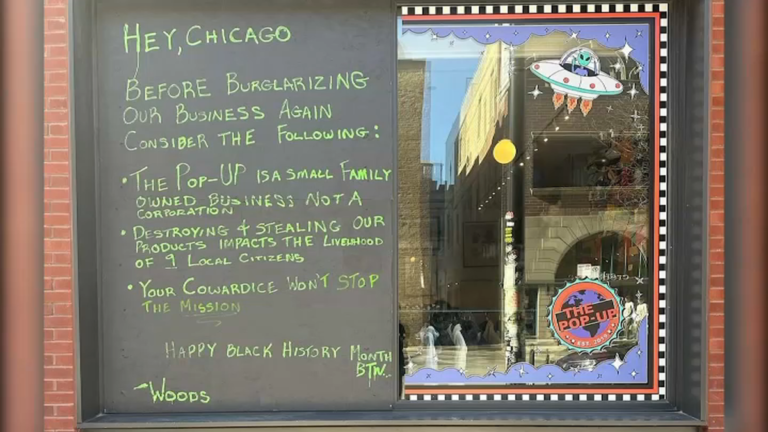 HEY, CHICAGO
BEFORE BURGLARIZING
OUR BUSINESS AGAIN
CONSIDER THE FOLLOWING:
• THE POP-UP IS A SMALL FAMILY
OWNED BUSINESS NOT A
CORPORATION
• DESTROYING & STEALING OUR
PRODUCTS IMPACTS THE LIVELIHOOD
OF 9 LOCAL CITIZENS
• YOUR COWARDICE WON'T STOP
THE MISSION
HAPPY BLACK HISTORY MONTH
BTW..
~WOODS
THE
POP-UP